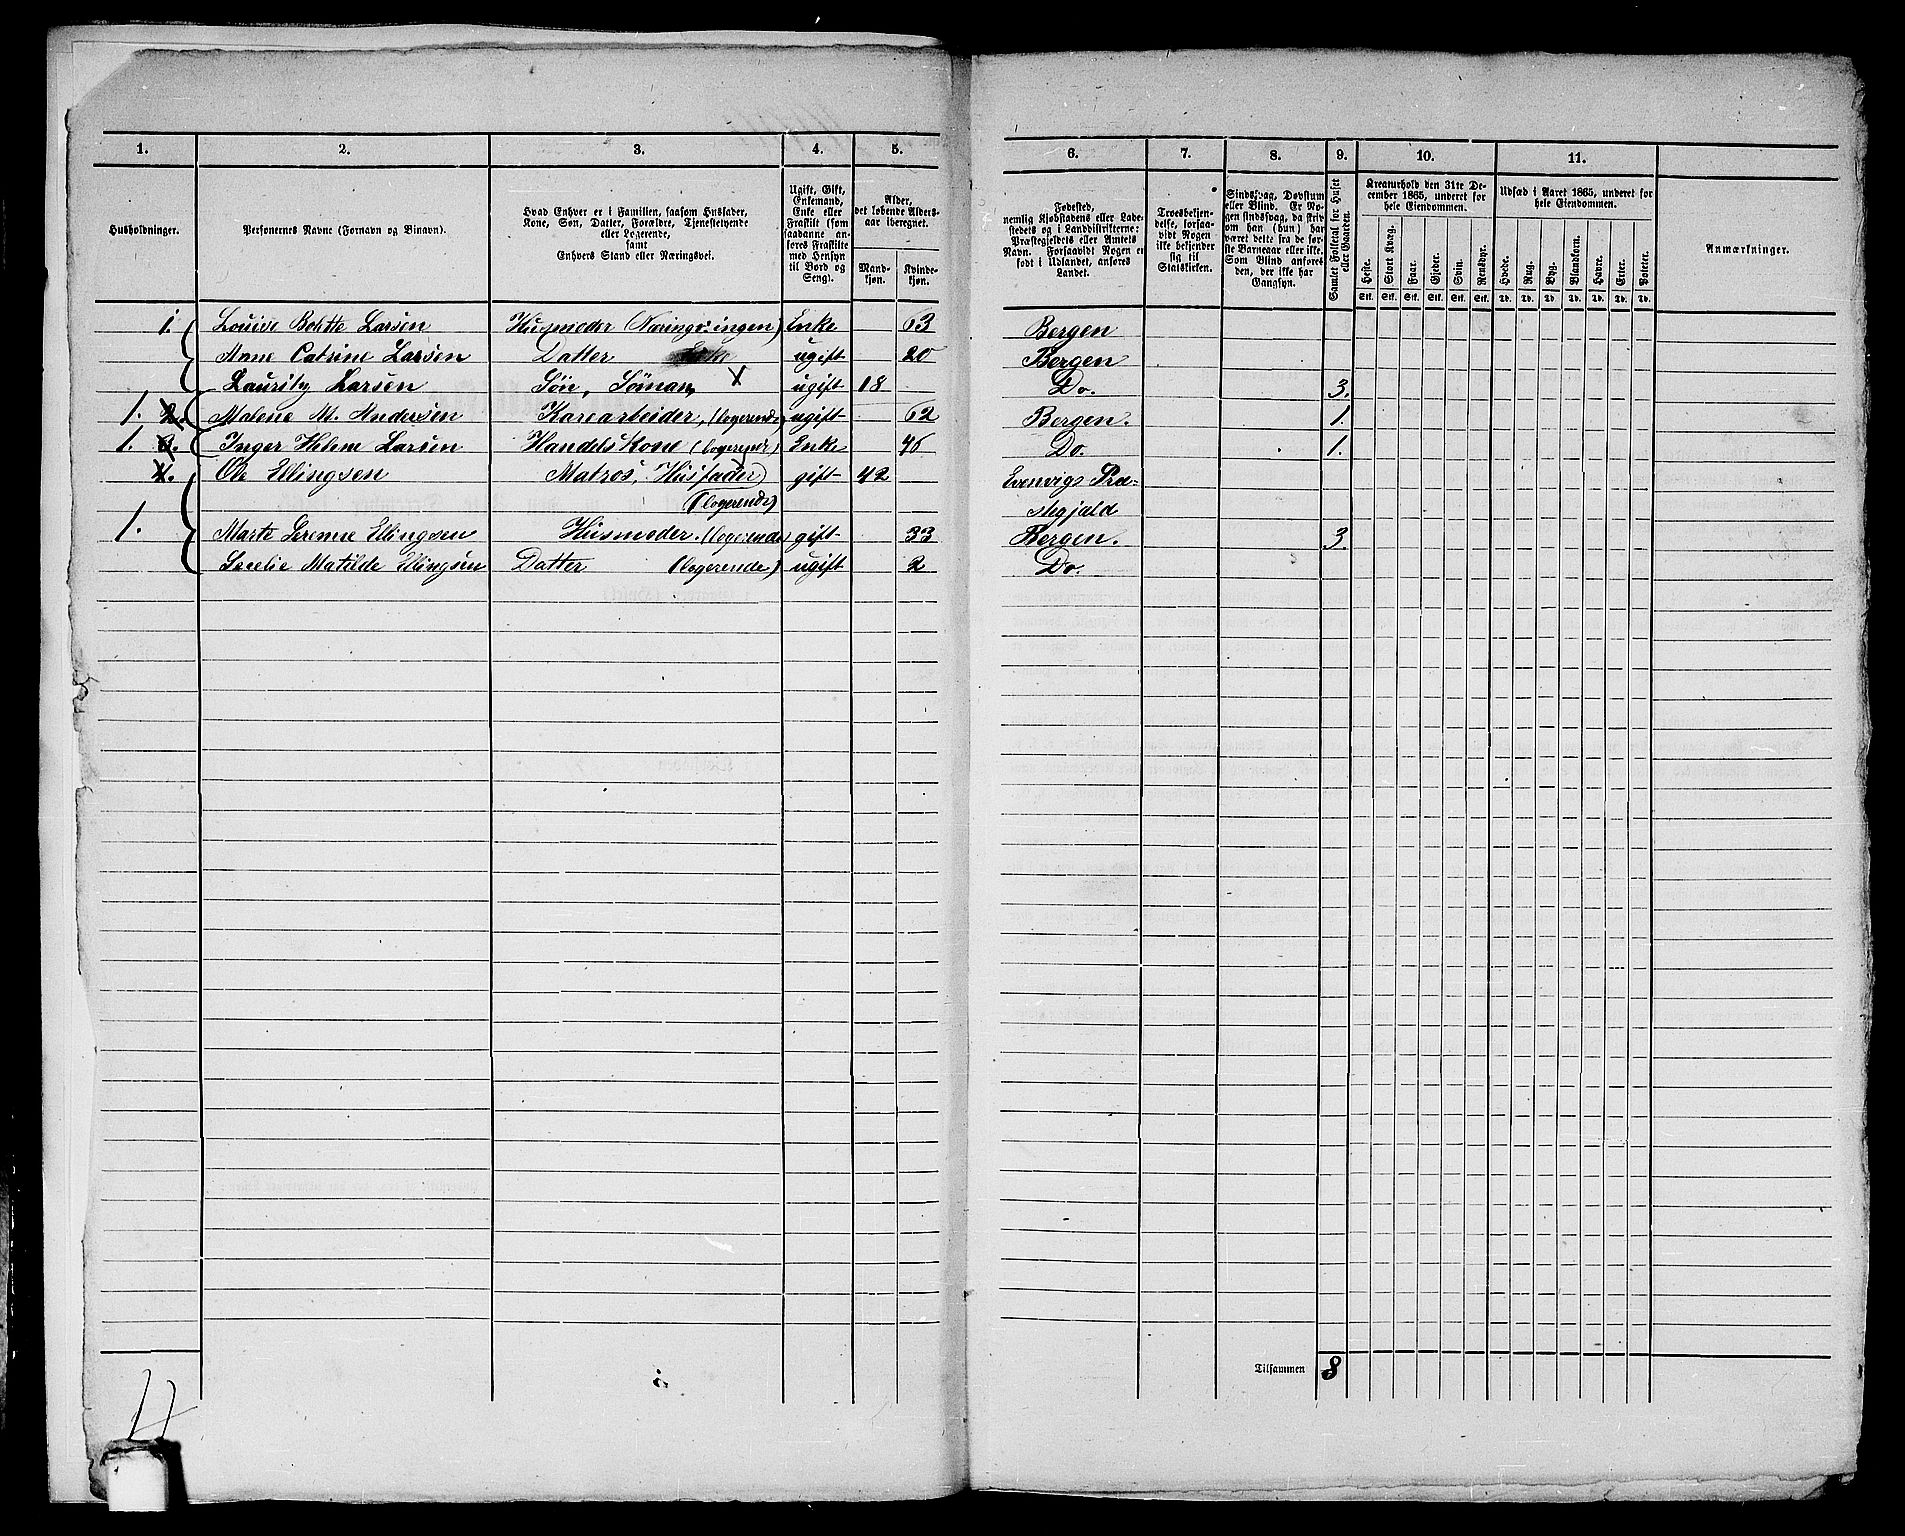 1. 2. 3. 4. 5. 6. 7. 8. 9. 10. 11.
Husholdninger.
Personernes Navne (Fornavn og Binavn).
Hvad Enhver er i Familien, saasom Husfader,
Kone, Søn, Datter, Forældre, Tjenestetyende
eller Logerende,
samt
Enhvers Stand eller Næringsvei.
Ugift, Gift,
Enkemand,
Enke eller
Fraskilt (som
saadanne an-
føres Fraskilte
med Hensyn
til Bord og
Seng).
Alder,
det løbende Alders-
aar iberegnet.
Mand-
kjøn.
Kvinde-
kjøn.
Fødested,
nemlig Kjøbstadens eller Lade-
stedets og i Landdistrikterne:
Præstegjeldets eller Amtets
Navn. Forsaavidt Nogen er
født i Udlandet, anføres
Landet.
Troesbekjen-
delse, forsaa-
vidt Nogen
ikke bekjender
sig til
Statskirken.
Sindssvag, Døvstum
eller Blind. Er No-
gen sindssvag, da skriv
om han (hun) har
været dette fra de før-
ste Barneaar eller ikke.
Som Blind anføres
den, der ikke har
Gangsyn.
Samlet Folketal for Huset
eller Gaarden.
Kreaturhold den 31te De-
cember 1865, underet for
hele Eiendommen.
Heste. Stort Kvæg. Faar. Gjeder. Svin. Rensdyr.
Stk. Stk. Stk. Stk. Stk. Stk.
Udsæd i Aaret 1865, underet for
hele Eiendommen.
Hvede. Rug. Byg. Blandkorn. Havre. Erter. Poteter.
Td. Td. Td. Td. Td. Td. Td.
Anmærkninger.
1. Louise Bolette Larsen Husmoder (Nærings: ingen) Enke 63 Bergen
Anne Catrine Larsen Datter ugift 20 Bergen
Lauritz Larsen Søn, Sömand X ugift 18 Do. 3.
1. 2. Malene M. Andersen Karearbeider, (logerende) ugift 62 Bergen. 1.
1. 3. Inger Helem Larsen Handels Kone (logerende) Enke 46 Do. 1.
4. Ole Ellingsen Matros, Husfader) gift 42 Evenvigs Præ-
(logerende) stegjæld
1. Marte Serenne Ellingsen Husmoder. (logerende) gift 33 Bergen. 3.
Secelie Matilde Ellingsen Datter (logerende) ugift 2 Do.
Tilsammen 8